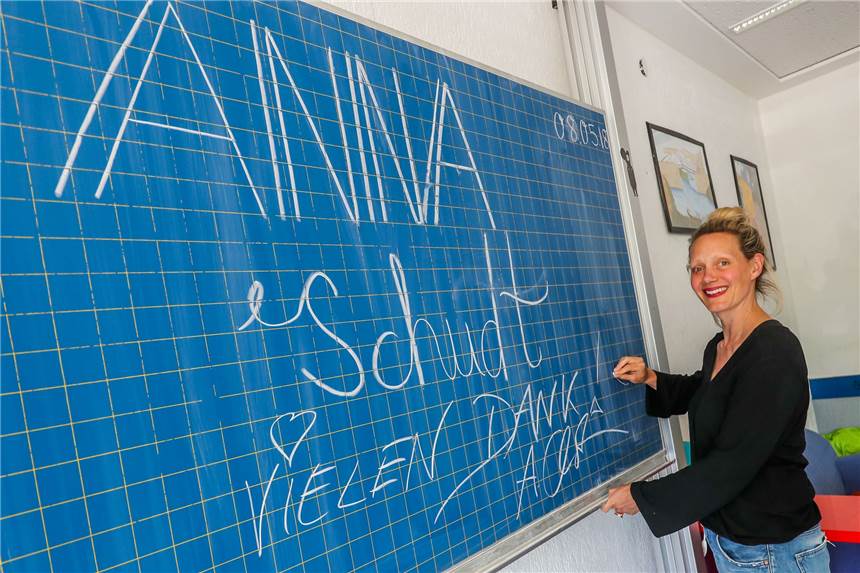 ANNA
08.05.18
Schudt
VIELEN DANK!